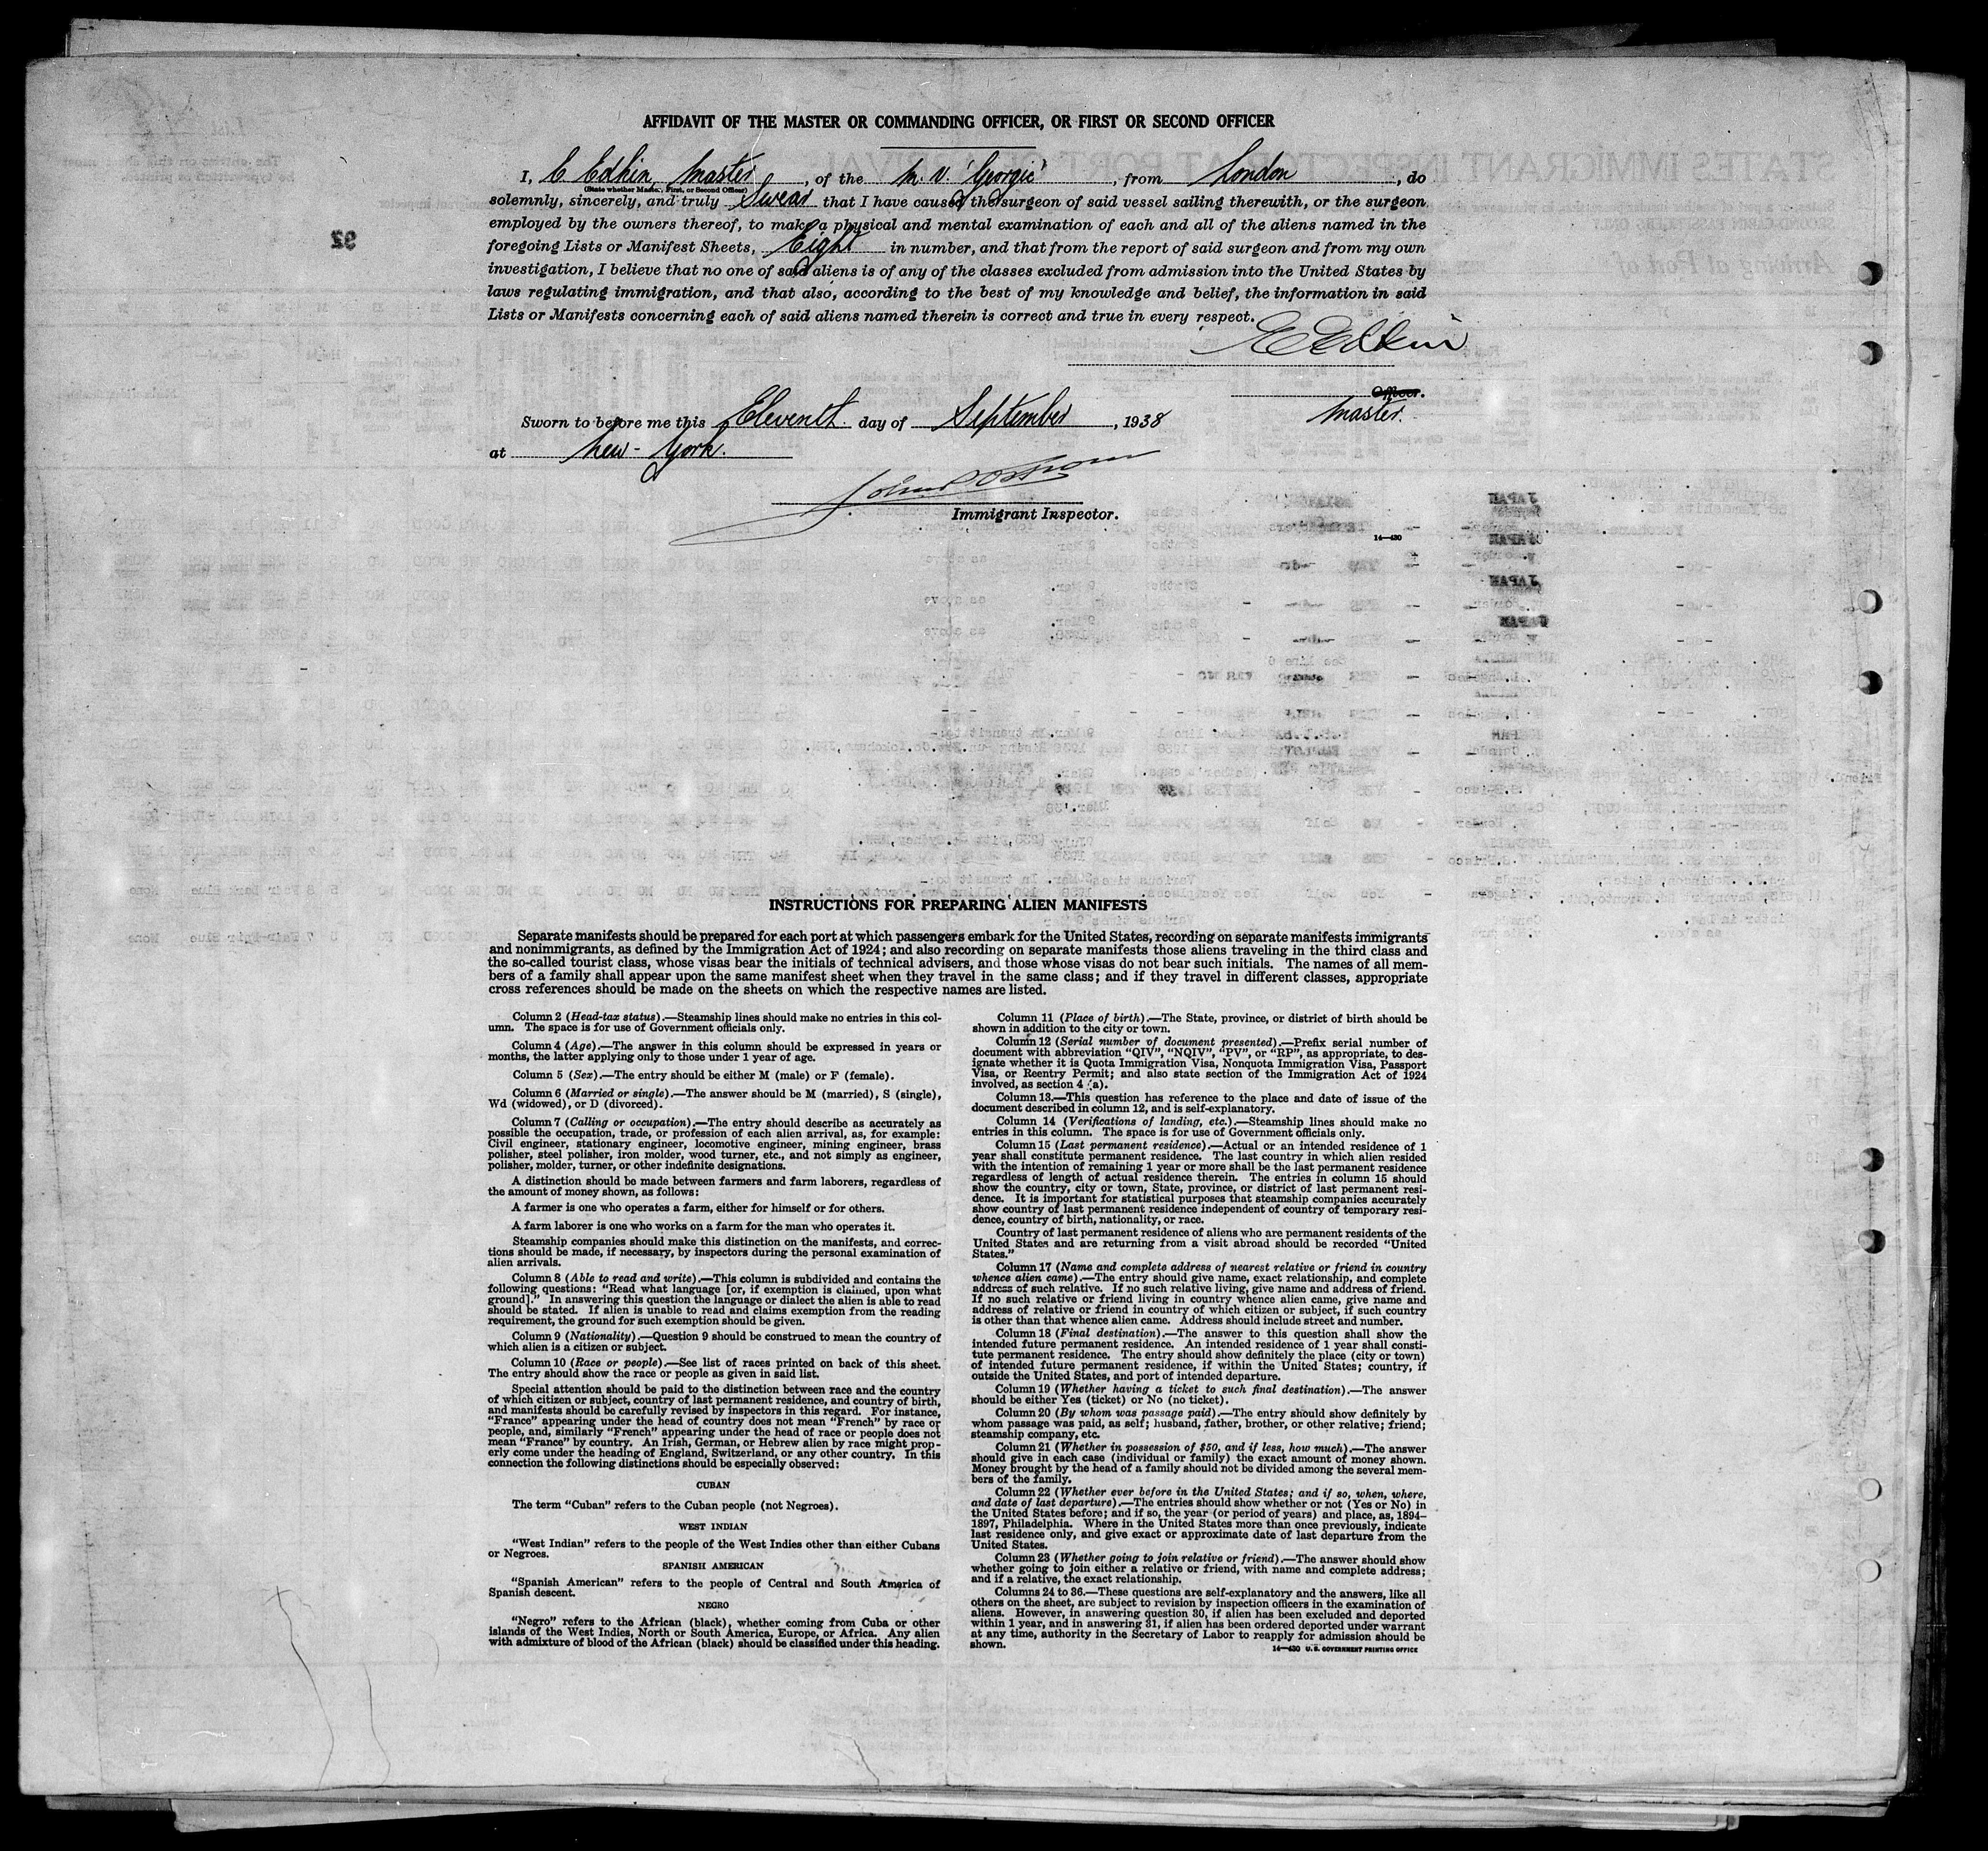 AFFIDAVIT OF THE MASTER OR COMMANDING OFFICER, OR FIRST OR SECOND OFFICER
I, E Edkin, Master, of the M.V. 'Georgic', from London, do
(State whether Master, First, or Second Officer)
solemnly, sincerely, and truly Swear that I have caused the surgeon of said vessel sailing therewith, or the surgeon
employed by the owners thereof, to make a physical and mental examination of each and all of the aliens named in the
foregoing Lists or Manifest Sheets, Eight in number, and that from the report of said surgeon and from my own
investigation, I believe that no one of said aliens is of any of the classes excluded from admission into the United States by
laws regulating immigration, and that also, according to the best of my knowledge and belief, the information in said
Lists or Manifests concerning each of said aliens named therein is correct and true in every respect.
E Edkin
Officer.
Master.
Sworn to before me this Eleventh day of September, 1938
at New-York.
Immigrant Inspector.
14—430
INSTRUCTIONS FOR PREPARING ALIEN MANIFESTS
Separate manifests should be prepared for each port at which passengers embark for the United States, recording on separate manifests immigrants
and nonimmigrants, as defined by the Immigration Act of 1924; and also recording on separate manifests those aliens traveling in the third class and
the so-called tourist class, whose visas bear the initials of technical advisers, and those whose visas do not bear such initials. The names of all mem-
bers of a family shall appear upon the same manifest sheet when they travel in the same class; and if they travel in different classes, appropriate
cross references should be made on the sheets on which the respective names are listed.
Column 2 (Head-tax status).—Steamship lines should make no entries in this col-
umn. The space is for use of Government officials only.
Column 4 (Age).—The answer in this column should be expressed in years or
months, the latter applying only to those under 1 year of age.
Column 5 (Sex).—The entry should be either M (male) or F (female).
Column 6 (Married or single).—The answer should be M (married), S (single),
Wd (widowed), or D (divorced).
Column 7 (Calling or occupation).—The entry should describe as accurately as
possible the occupation, trade, or profession of each alien arrival, as, for example:
Civil engineer, stationary engineer, locomotive engineer, mining engineer, brass
polisher, steel polisher, iron molder, wood turner, etc., and not simply as engineer,
polisher, molder, turner, or other indefinite designations.
A distinction should be made between farmers and farm laborers, regardless of
the amount of money shown, as follows:
A farmer is one who operates a farm, either for himself or for others.
A farm laborer is one who works on a farm for the man who operates it.
Steamship companies should make this distinction on the manifests, and correc-
tions should be made, if necessary, by inspectors during the personal examination of
alien arrivals.
Column 8 (Able to read and write).—This column is subdivided and contains the
following questions: "Read what language [or, if exemption is claimed, upon what
ground]." In answering this question the language or dialect the alien is able to read
should be stated. If alien is unable to read and claims exemption from the reading
requirement, the ground for such exemption should be given.
Column 9 (Nationality).—Question 9 should be construed to mean the country of
which alien is a citizen or subject.
Column 10 (Race or people).—See list of races printed on back of this sheet.
The entry should show the race or people as given in said list.
Special attention should be paid to the distinction between race and the country
of which citizen or subject, country of last permanent residence, and country of birth,
and manifests should be carefully revised by inspectors in this regard. For instance,
"France" appearing under the head of country does not mean "French" by race or
people, and, similarly "French" appearing under the head of race or people does not
mean "France" by country. An Irish, German, or Hebrew alien by race might prop-
erly come under the heading of England, Switzerland, or any other country. In this
connection the following distinctions should be especially observed:
CUBAN
The term "Cuban" refers to the Cuban people (not Negroes).
WEST INDIAN
"West Indian" refers to the people of the West Indies other than either Cubans
or Negroes.
SPANISH AMERICAN
"Spanish American" refers to the people of Central and South America of
Spanish descent.
NEGRO
"Negro" refers to the African (black), whether coming from Cuba or other
islands of the West Indies, North or South America, Europe, or Africa. Any alien
with admixture of blood of the African (black) should be classified under this heading.
Column 11 (Place of birth).—The State, province, or district of birth should be
shown in addition to the city or town.
Column 12 (Serial number of document presented).—Prefix serial number of
document with abbreviation "QIV", "NQIV", "PV", or "RP", as appropriate, to des-
ignate whether it is Quota Immigration Visa, Nonquota Immigration Visa, Passport
Visa, or Reentry Permit; and also state section of the Immigration Act of 1924
involved, as section 4 (a).
Column 13.—This question has reference to the place and date of issue of the
document described in column 12, and is self-explanatory.
Column 14 (Verifications of landing, etc.).—Steamship lines should make no
entries in this column. The space is for use of Government officials only.
Column 15 (Last permanent residence).—Actual or an intended residence of 1
year shall constitute permanent residence. The last country in which alien resided
with the intention of remaining 1 year or more shall be the last permanent residence
regardless of length of actual residence therein. The entries in column 15 should
show the country, city or town, State, province, or district of last permanent resi-
dence. It is important for statistical purposes that steamship companies accurately
show country of last permanent residence independent of country of temporary resi-
dence, country of birth, nationality, or race.
Country of last permanent residence of aliens who are permanent residents of the
United States and are returning from a visit abroad should be recorded "United
States."
Column 17 (Name and complete address of nearest relative or friend in country
whence alien came).—The entry should give name, exact relationship, and complete
address of such relative. If no such relative living, give name and address of friend.
If no such relative or friend living in country whence alien came, give name and
address of relative or friend in country of which citizen or subject, if such country
is other than that whence alien came. Address should include street and number.
Column 18 (Final destination).—The answer to this question shall show the
intended future permanent residence. An intended residence of 1 year shall consti-
tute permanent residence. The entry should show definitely the place (city or town)
of intended future permanent residence, if within the United States; country, if
outside the United States, and port of intended departure.
Column 19 (Whether having a ticket to such final destination).—The answer
should be either Yes (ticket) or No (no ticket).
Column 20 (By whom was passage paid).—The entry should show definitely by
whom passage was paid, as self; husband, father, brother, or other relative; friend;
steamship company, etc.
Column 21 (Whether in possession of $50, and if less, how much).—The answer
should give in each case (individual or family) the exact amount of money shown.
Money brought by the head of a family should not be divided among the several mem-
bers of the family.
Column 22 (Whether ever before in the United States; and if so, when, where,
and date of last departure).—The entries should show whether or not (Yes or No) in
the United States before; and if so, the year (or period of years) and place, as, 1894–
1897, Philadelphia. Where in the United States more than once previously, indicate
last residence only, and give exact or approximate date of last departure from the
United States.
Column 23 (Whether going to join relative or friend).—The answer should show
whether going to join either a relative or friend, with name and complete address;
and if a relative, the exact relationship.
Columns 24 to 36.—These questions are self-explanatory and the answers, like all
others on the sheet, are subject to revision by inspection officers in the examination of
aliens. However, in answering question 30, if alien has been excluded and deported
within 1 year, and in answering 31, if alien has been ordered deported under warrant
at any time, authority in the Secretary of Labor to reapply for admission should be
shown.
14—430 U. S. GOVERNMENT PRINTING OFFICE